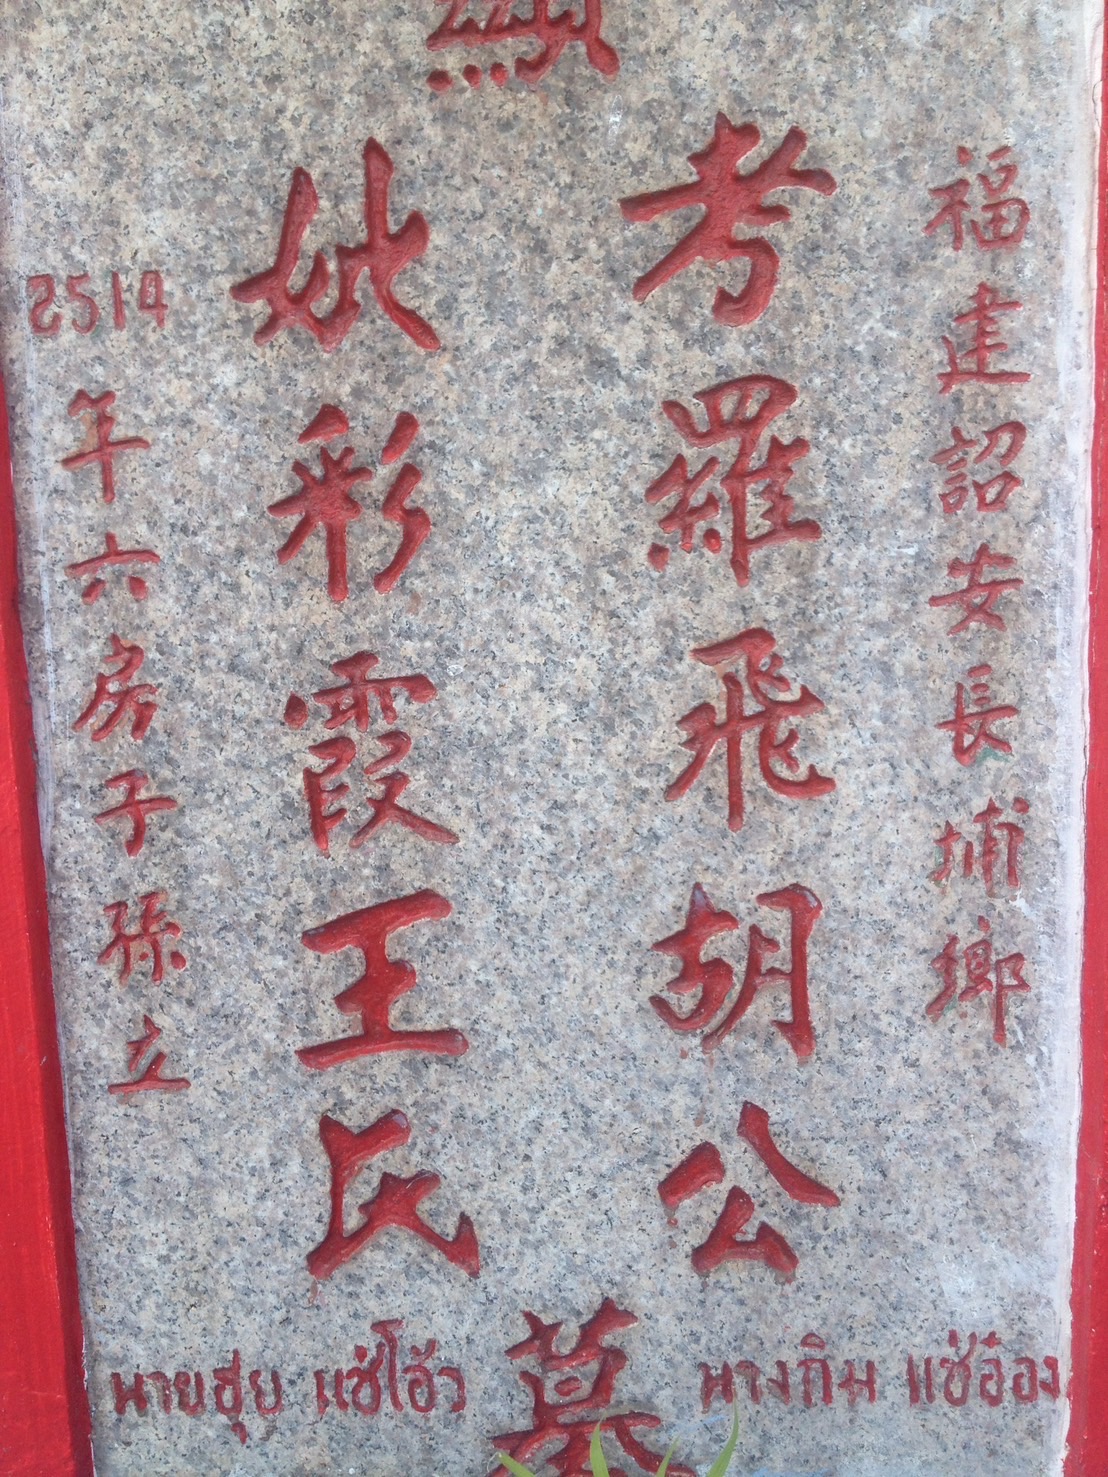 福建詔安長埔鄉
顯
考羅飛胡公
妣彩霞王氏
墓
2514年六房子孫立
นายฮุย แซ่โอ้ว
นางกิม แซ่อ๋อง